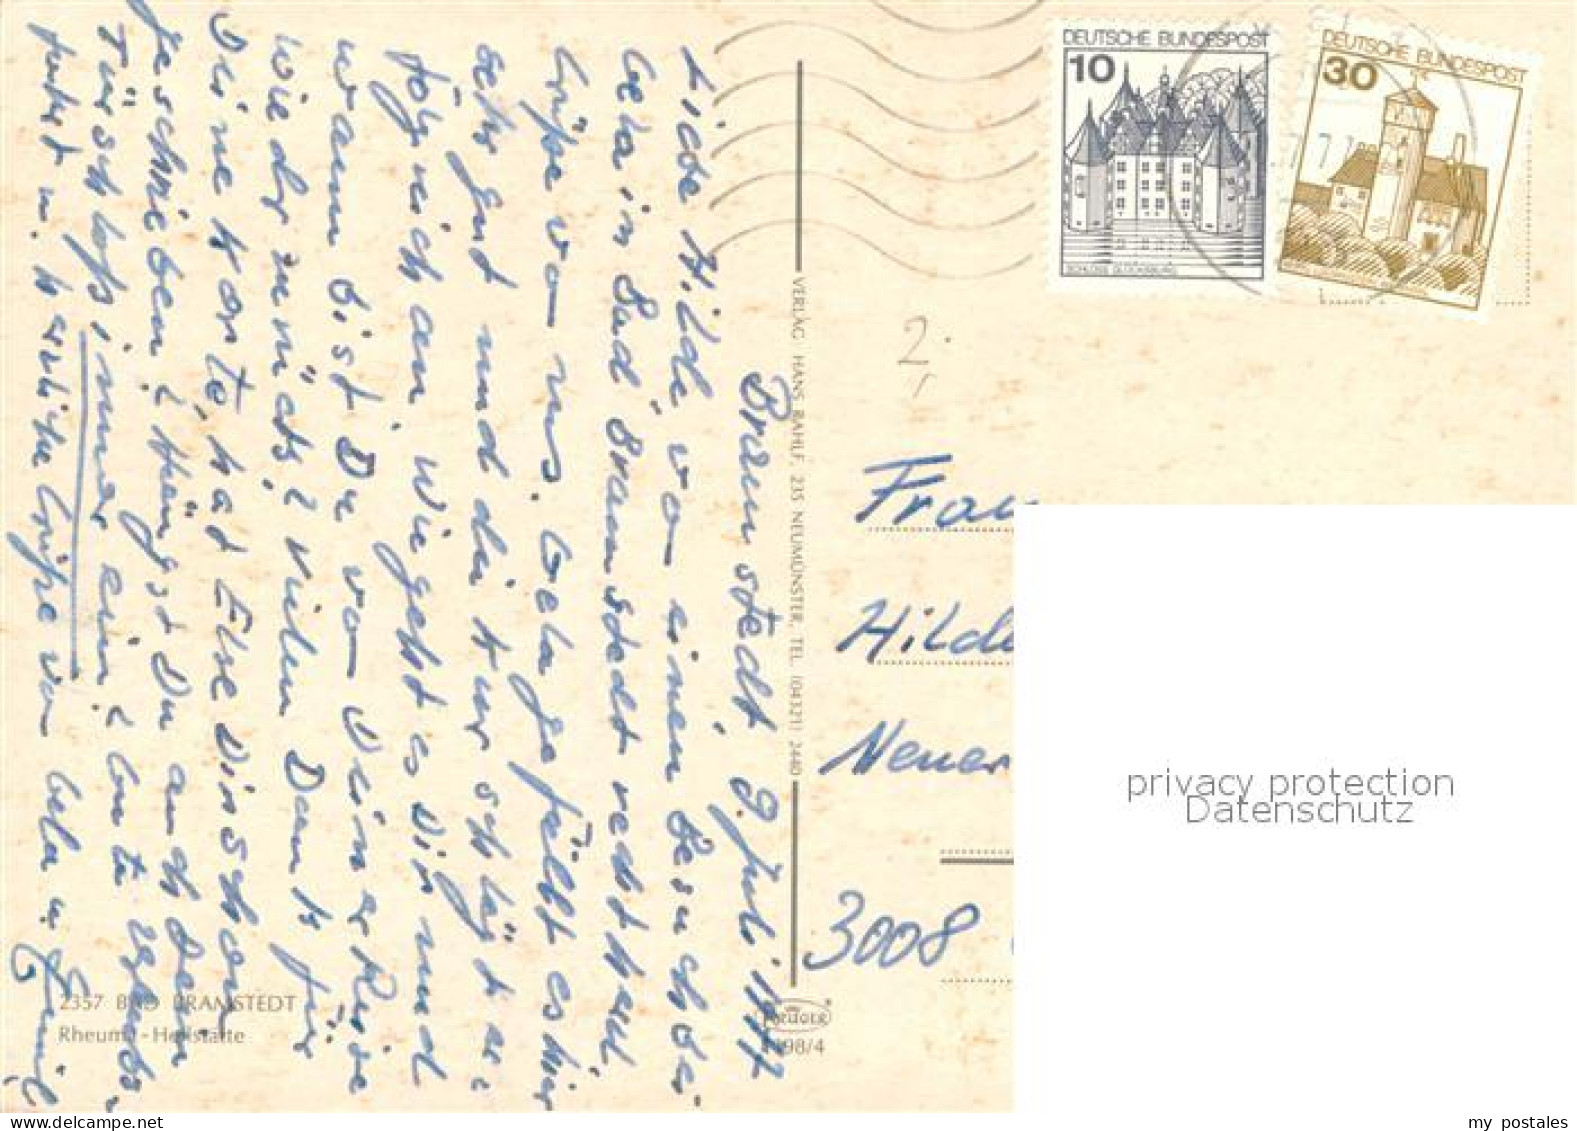 DEUTSCHE BUNDESPOST
10
SCHLOSS GLÜCKSBURG
DEUTSCHE BUNDESPOST
30
2.
Bramstedt, 9. Juli 1977
Liebe Hilde von einem Besuch bei
Gela in Bad Bramstedt recht herzl.
Grüße von uns. Gela gefällt es hier
sehr gut und die Kur schlägt er-
folgreich an. Wie geht es Dir und
wann bist Du von Deiner Reise
wieder zurück? Vielen Dank für
Deine Karte, hat Else Dir schon
geschrieben? Hängst Du auch Dein
Türschloß immer ein?
sofort u. herzliche Grüße von Gela u.
VERLAG HANS RAHLF, 235 NEUMÜNSTER, TEL. (04321) 2440
Frau
Hilde
Neuer
3008
2357 BAD BRAMSTEDT
Rheuma-Heilstätte
1198/4
privacy protection
Datenschutz
my postales